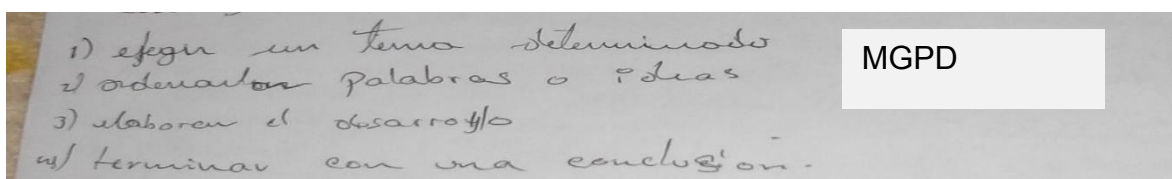 1) elegir un tema determinado
2) ordenarlos palabras o ideas
3) elaborar el desarrollo
4) terminar con una conclusión.
MGPD